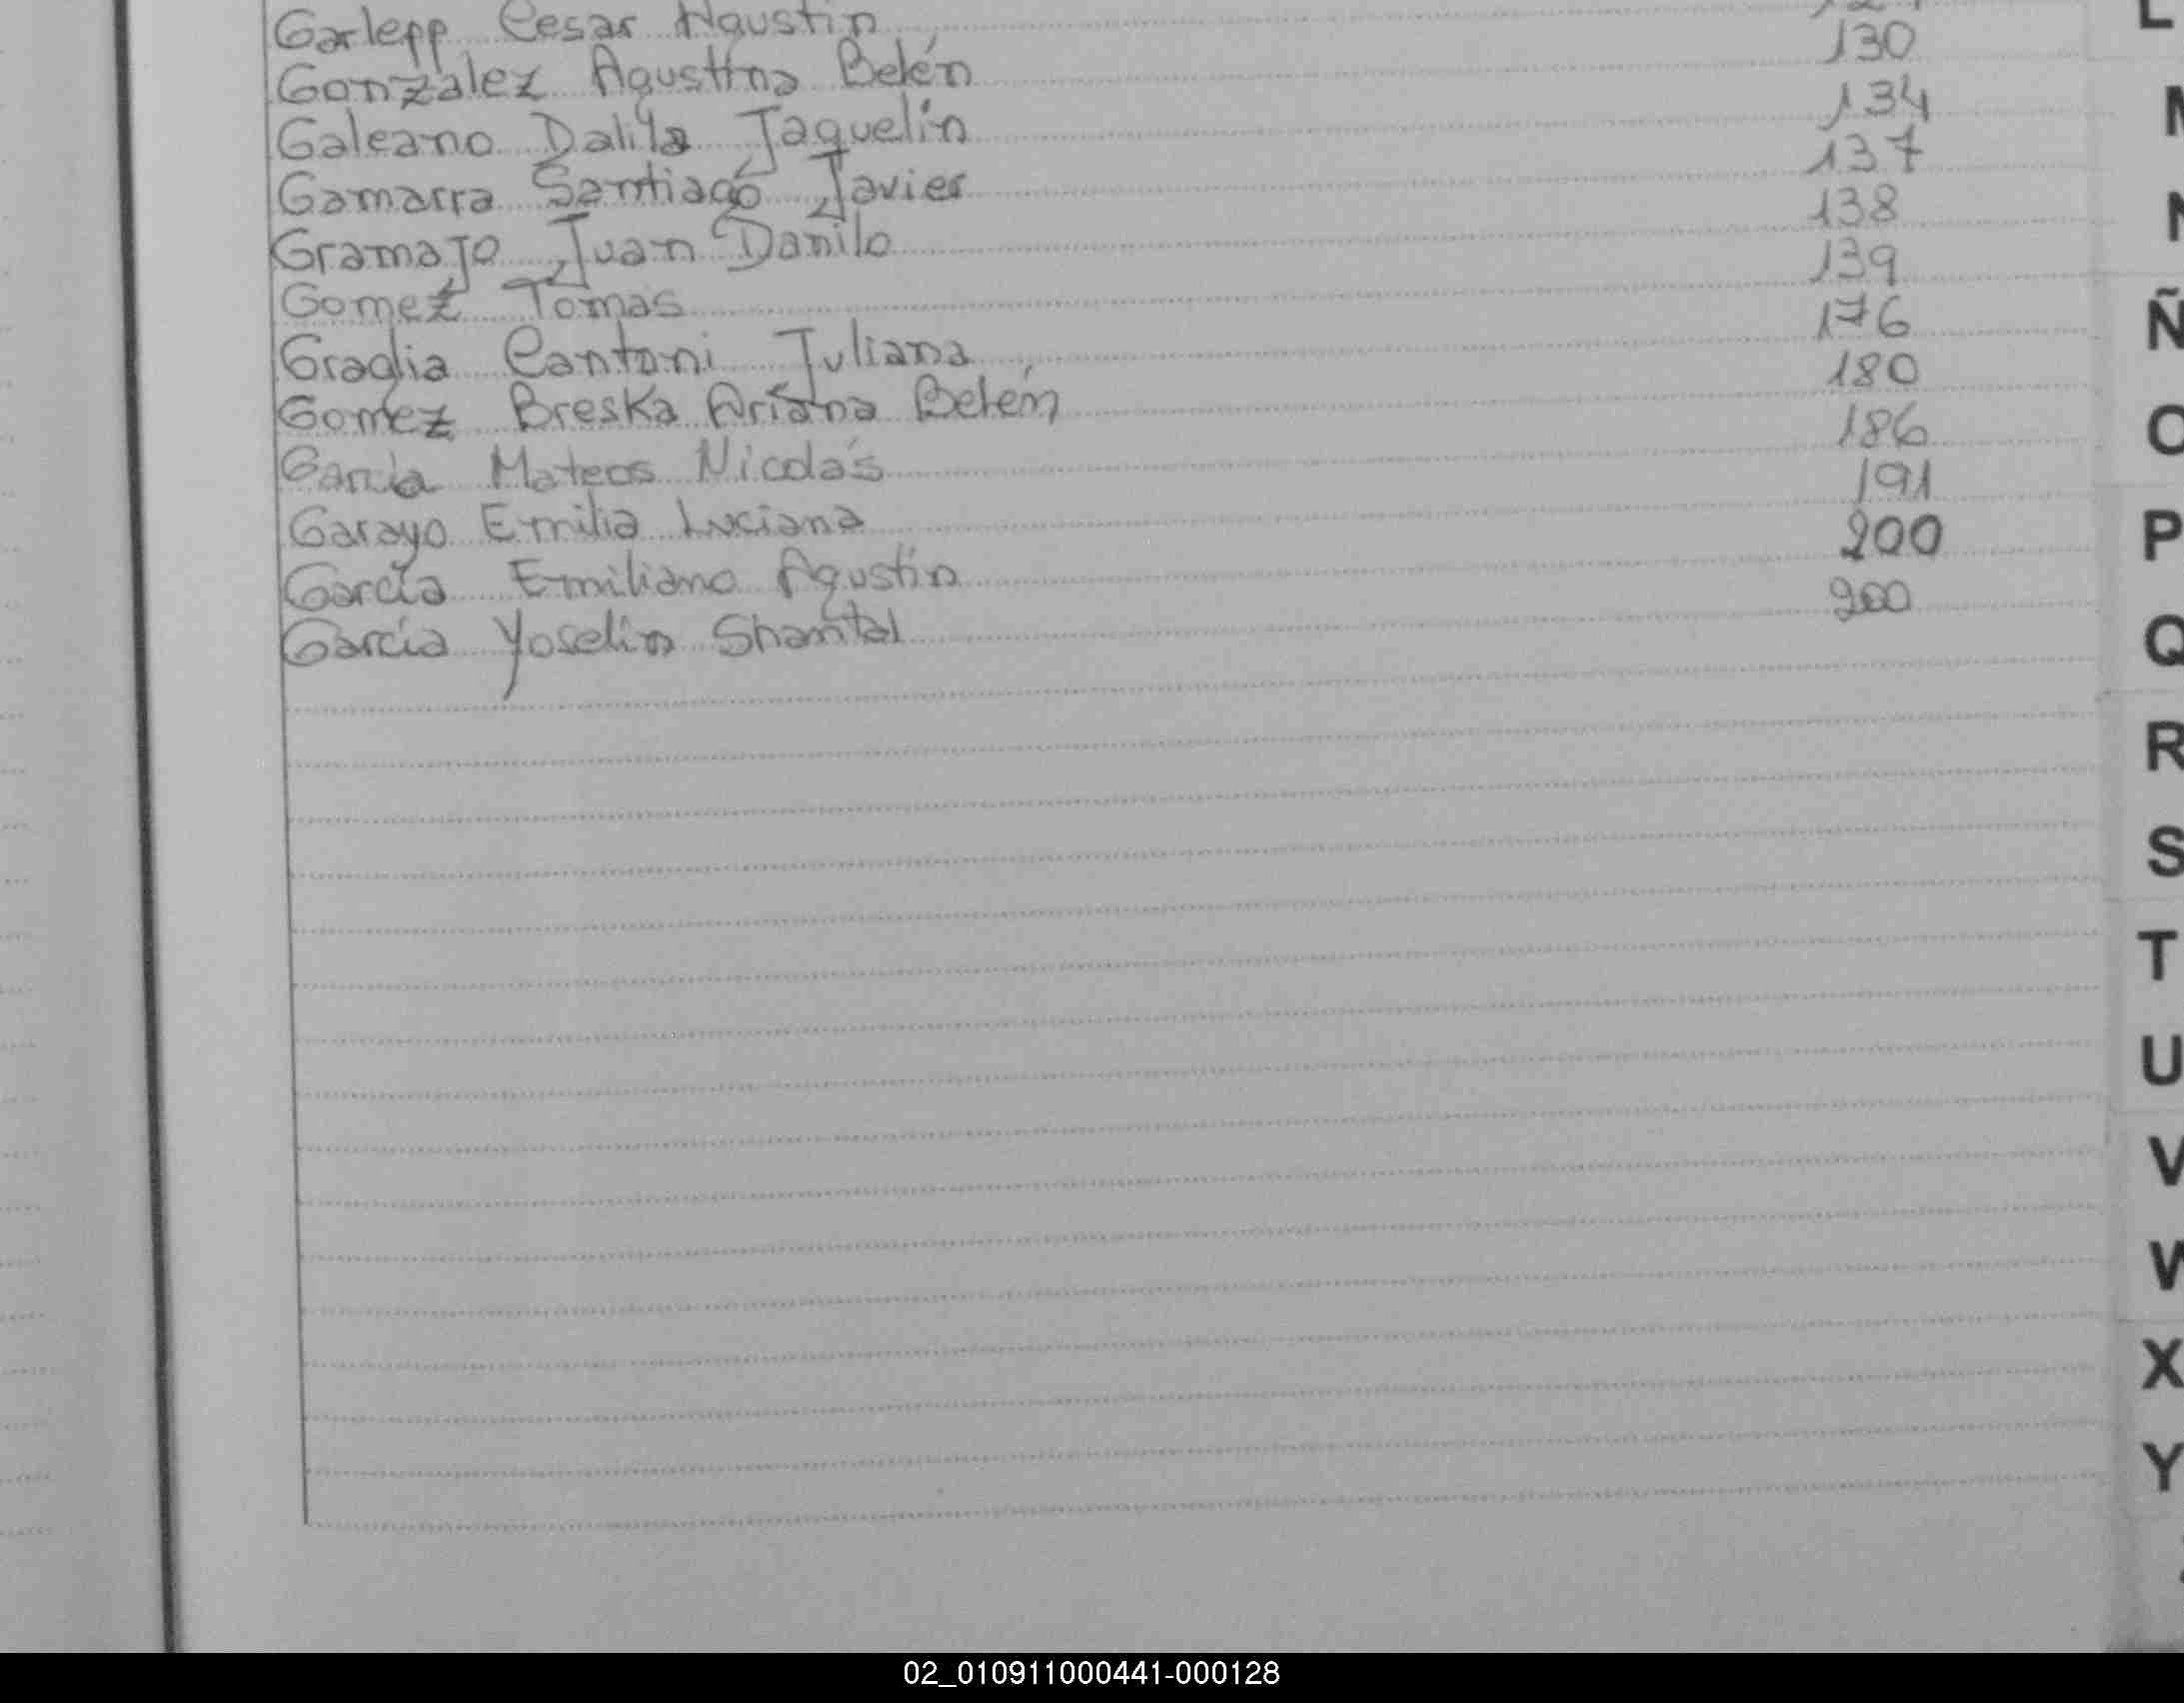 Garlepp Cesar Agustín
González Agustina Belén 130
Galeano Dalila Jaquelin 134
Gamarra Santiago Javier 137
Gramajo Juan Danilo 138
Gomez Tomas 139
Graglia Cantoni Juliana 176
Gomez Breska Ariana Belén 180
García Mateos Nicolás 186
Garayo Emilia Luciana 191
García Emiliano Agustín 200
García Yoselin Shantal 200
L
M
N
Ñ
O
P
Q
R
S
T
U
V
W
X
Y
02_010911000441-000128